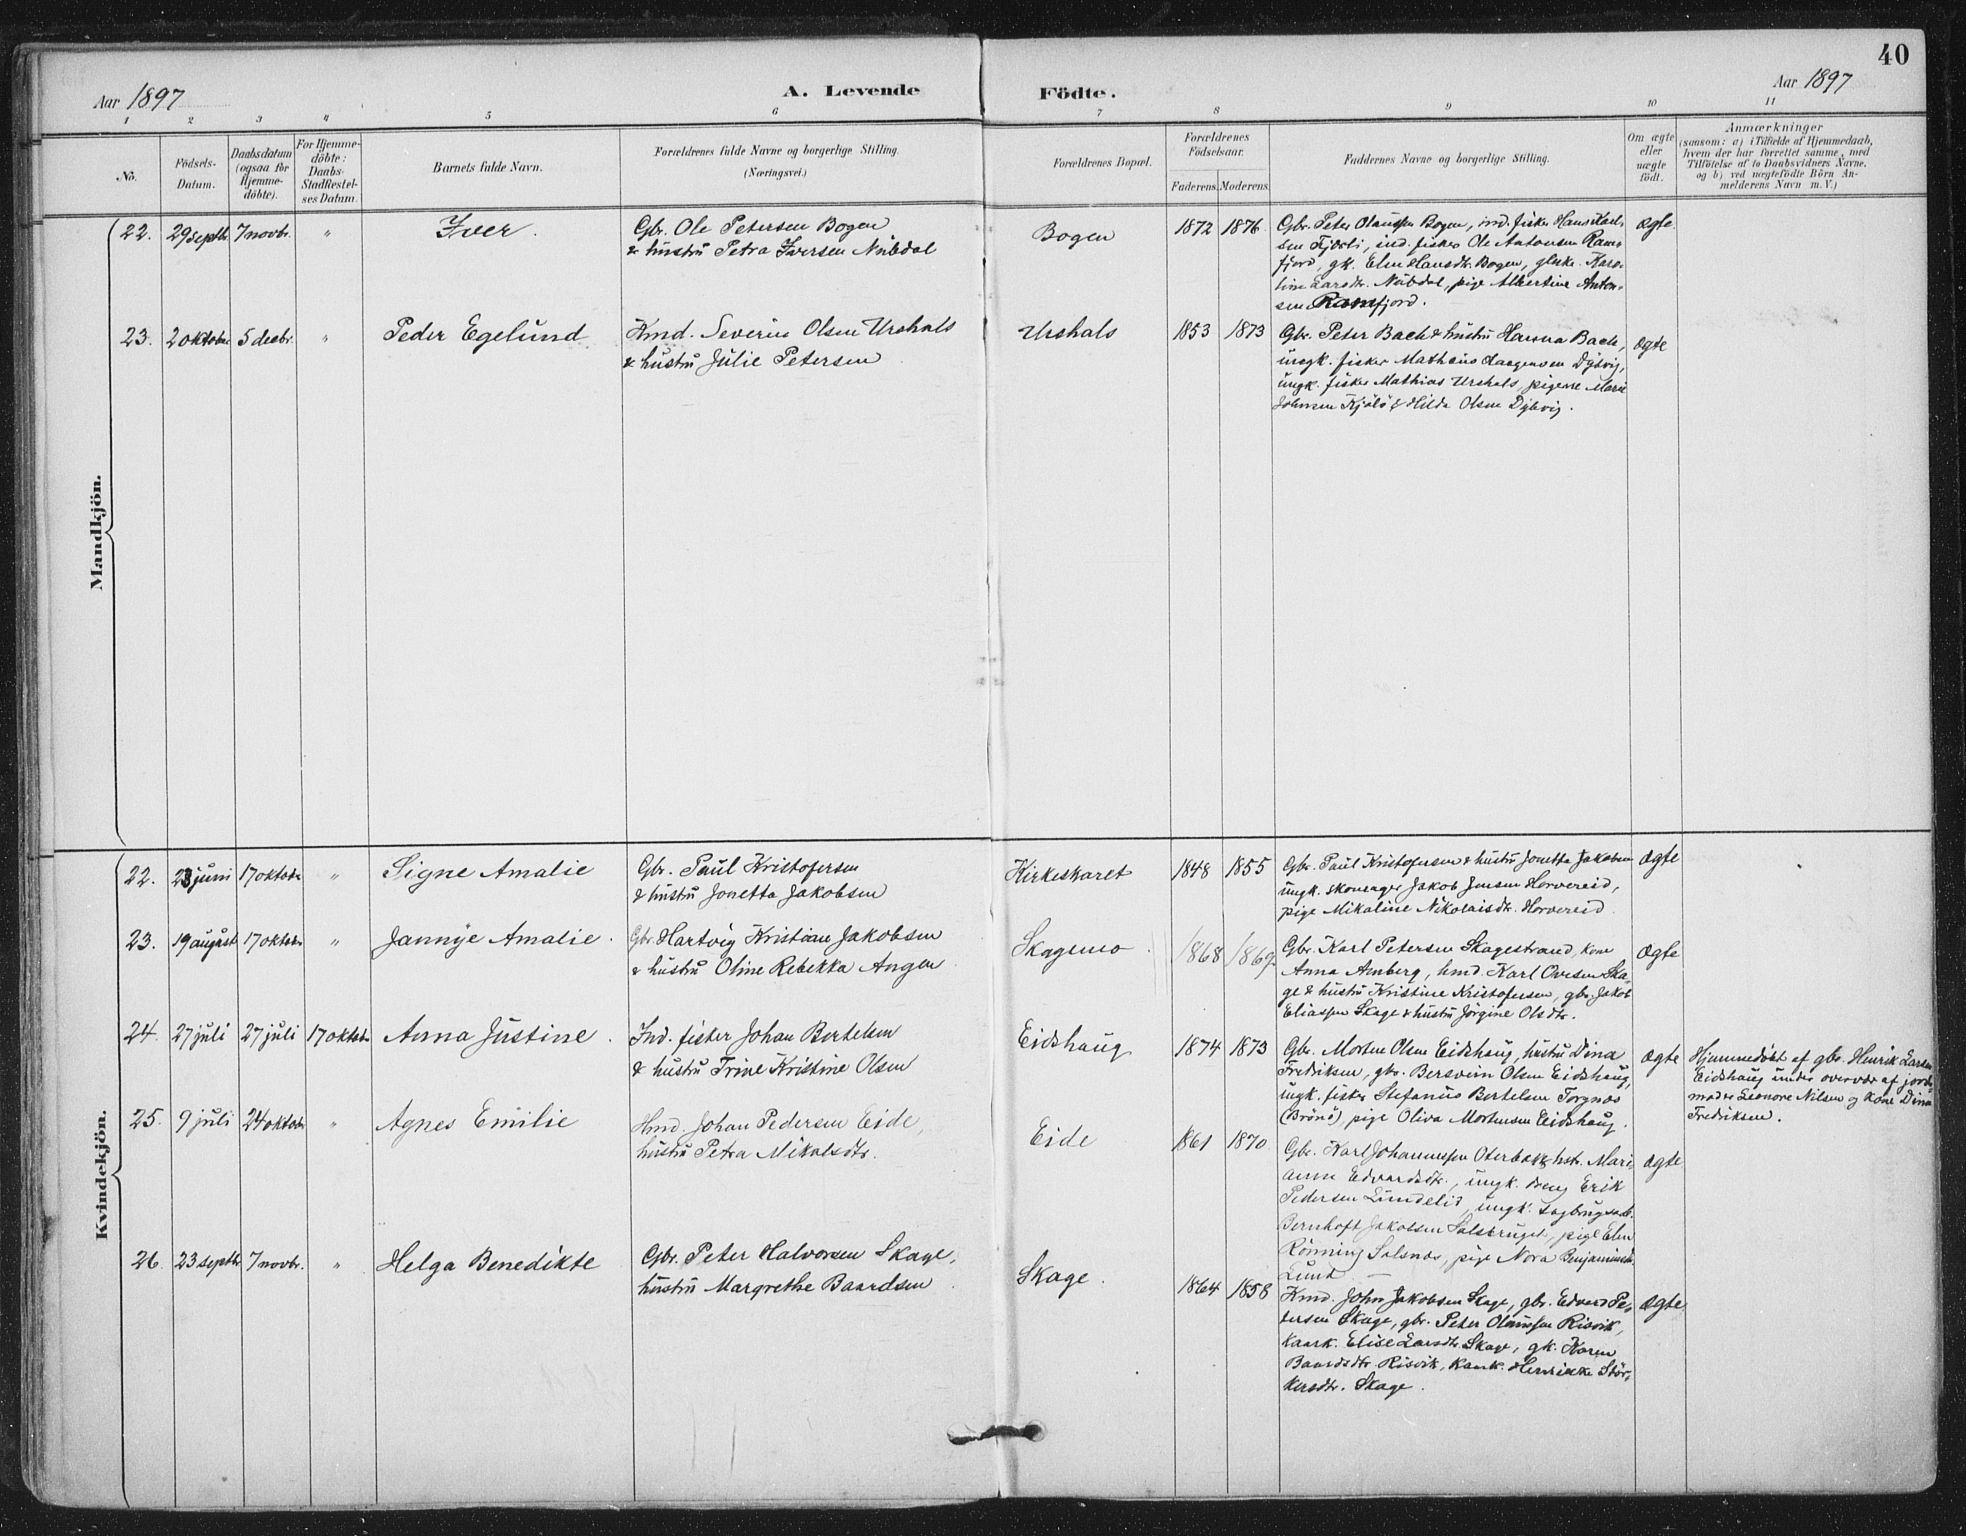 40
Aar 1897
A. Levende Födte.
Aar 1897
1 2 3 4 5 6 7 8 9 10 11
No.
Födsels-
Datum.
Daabsdatum
(ogsaa för
Hjemme-
döbte).
For Hjemme-
döbte:
Daabs-
Stadfæstel-
ses Datum.
Barnets fulde Navn.
Forældrenes fulde Navne og borgerlige Stilling.
(Næringsvei.)
Forældrenes Bopæl.
Forældrenes
Födselsaar.
Faderens. Moderens.
Faddernes Navne og borgerlige Stilling.
Om ægte
eller
uægte
födt.
Anmærkninger
(saasom: a) i Tilfælde af Hjemmedaab,
hvem der har forrettet samme, med
Tilföielse af to Daabsvidners Navne,
og b) ved uægtefödte Börn An-
melderens Navn m. V.)
Mandkjön.
22. 29 septbr. 7 novbr. " Iver.
Gbr. Ole Petersen Bogen
& hustru Petra Iversen Nubdal
Bogen 1872 1876
Gbr. Peter Olaussen Bogen, ind. fisker Hans Karl-
sen Fjærli, ind. fisker Ole Antonsen Ram-
fjord, gk. Elen Hansdtr. Bogen, Karo-
line Larsdtr. Nubdal, pige Albertine Anton-
sen Ramfjord.
ægte
23. 2 oktobr 5 decbr. " Peder Egelund
Hmd. Severin Olsen Urshals
& hustru Julie Petersen
Urshals 1853 1873
Gbr. Peter Bach & hustru Hanna Bach,
ungk. fisker Mathæus Dybvig,
ungk. fisker Mathias Urshals, pigerne Marie
Johnsen Kjölö & Hilda Olsen Dybvig.
ægte
Kvindekjön.
22. 23 juni 17 oktobr " Signe Amalie
Gbr. Paul Kristofersen
& hustru Jonetta Jakobsen
Kirkeskaret 1848 1855
Gbr. Paul Kristofersen & hustru Jonetta Jakobsen
ungk. skomager Jakob Jensen Horvereid,
pige Mikaline Nikolaisdtr. Horvereid.
ægte
23. 19 august 17 oktobr " Jannye Amalie.
Gbr. Hartvig Kristian Jakobsen
& hustru Oline Rebekka Angen
Skagemo 1868 1869.
Gbr. Karl Petersen Skagestrand, kone
Anna Amberg, hmd. Karl Ovesen Ska-
ge & hustru Kristine Kristofersen, gbr. Jakob
Eliassen Skage & hustru Jörgine Olsdtr.
ægte
24. 27 juli 27 juli 17 oktobr Anna Justine.
Ind. fisker Johan Bertelsen
& hustru Trine Kristine Olsen
Eidshaug 1874 1873
Gbr. Morten Olsen Eidshaug, hustru Dina
Fredriksen, gbr. Bersvein Olsen Eidshaug,
ungk. fisker Stefanus Bertelsen Torgnæs
(Brönö), pige Oliva Mortensen Eidshaug.
ægte
Hjemmedöbt af gbr. Henrik Larsen
Eidshaug under overvær af jorde-
moder Leonore Nilsen og kone Dina
Fredriksen.
25. 9 juli 24 oktobr " Agnes Emilie
Hmd. Johan Pedersen Eide,
hustru Petra Mikalsdtr.
Eide 1861 1870
Gbr. Karl Johannessen Oterbæk, hstr. Mari-
anne Edvardsdtr., ungk. Erik
Pedersen Lundelid, ungk.
Bernhoft Jakobsen Salsbruget, pige Elen
Rönning Salsnæs, pige Nora Benjaminsdtr.
Lund
ægte
26. 23 septbr 7 novbr. " Helga Benedikte
Gbr. Peter Halvorsen Skage,
hustru Margrethe Baardsen
Skage. 1864 1858
Hmd. John Jakobsen Skage, gbr. Edvard Pe-
tersen Skage, gbr. Peter Olaussen Risvik,
kaark. Elise Larsdtr. Skage, gk. Karen
Baardsdtr. Risvik, kaark. Henrikke Stör-
kersdtr. Skage.
ægte